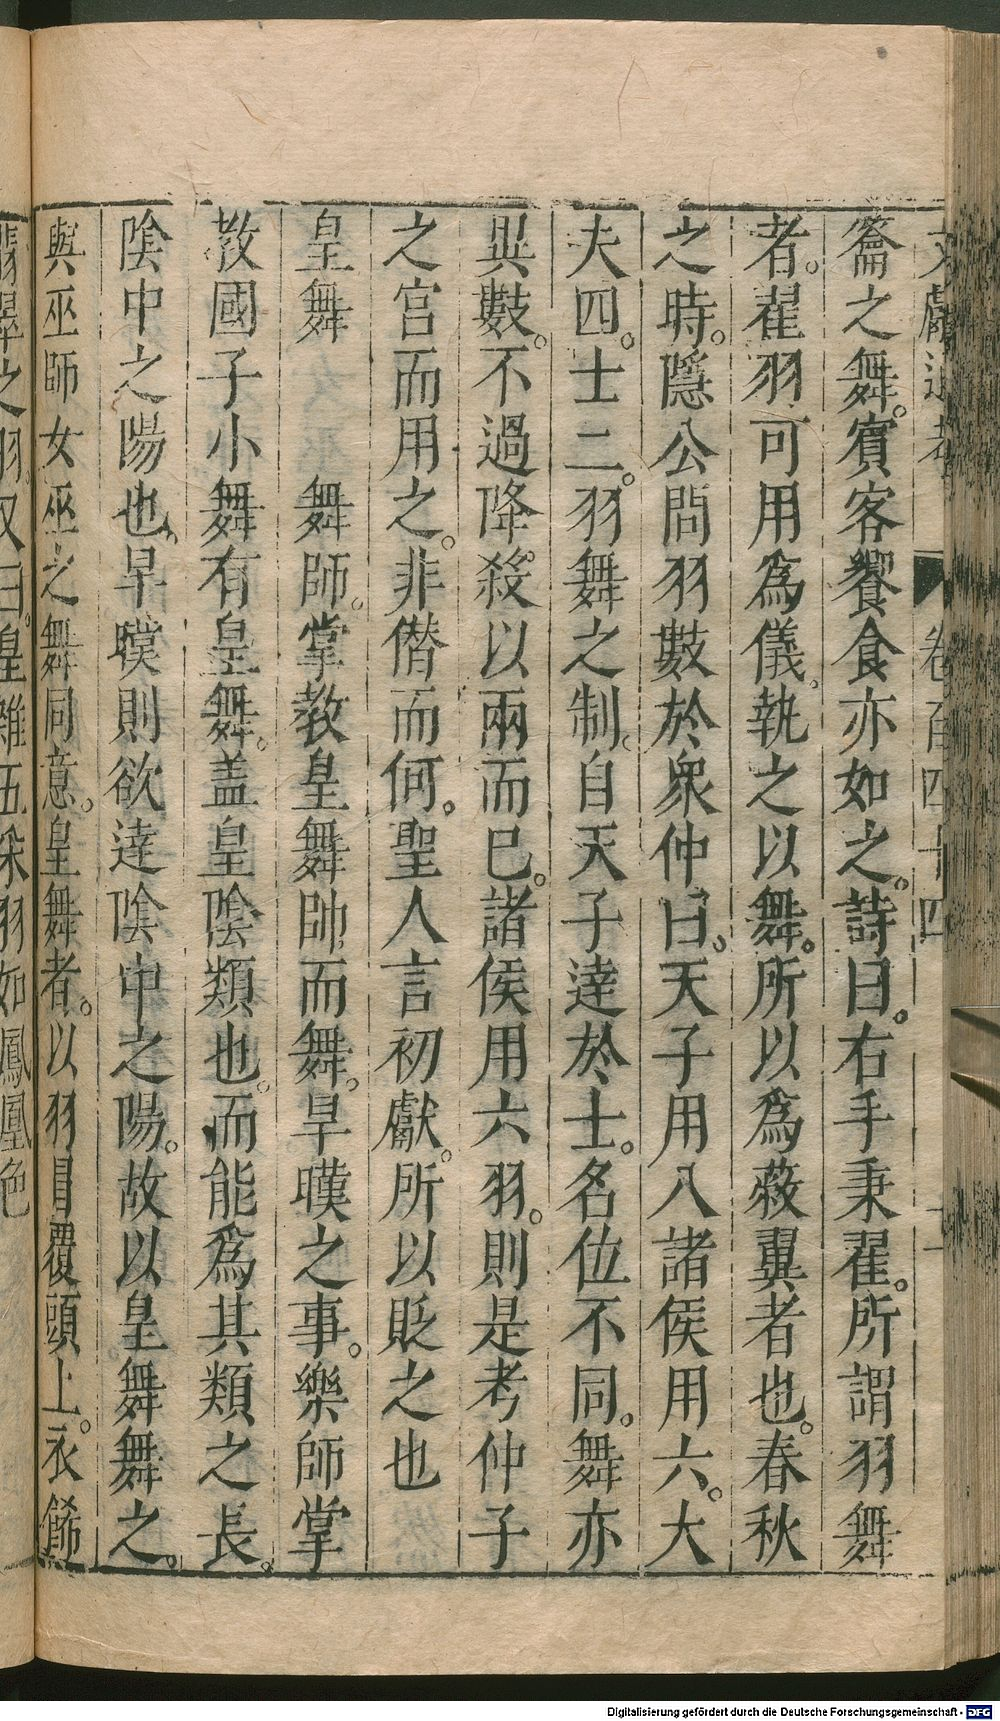 文獻通考　卷百四十四
籥之舞。賓客饗食亦如之。詩曰。右手秉翟。所謂羽舞
者。翟羽可用爲儀。執之以舞。所以爲蔽翼者也。春秋
之時。隱公問羽數於衆仲。曰。天子用八諸侯用六。大
夫四。士二。羽舞之制。自天子達於士。名位不同。舞亦
異數。不過降殺以兩而已。諸侯用六羽。則是考仲子
之宮而用之。非僣而何。聖人言初獻。所以貶之也
皇舞　　舞師。掌教皇舞帥而舞。旱暵之事。樂師掌
教國子小舞有皇舞。盖皇陰類也。而能爲其類之長。
陰中之陽也。旱暵則欲達陰中之陽。故以皇舞舞之。
與巫師女巫之舞同意。皇舞者。以羽冒覆頭上。衣餙
翡翠之羽。又曰。皇雜五采羽如鳳凰色
Digitalisierung gefördert durch die Deutsche Forschungsgemeinschaft - DFG